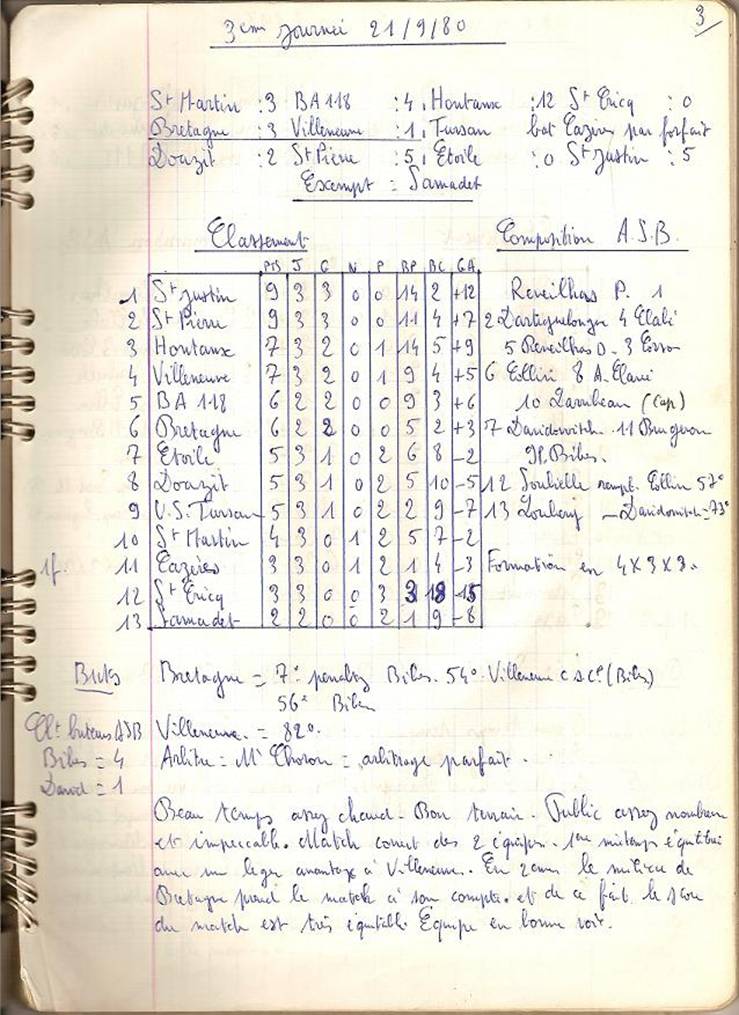 3
3eme Journée 21/9/80
St Martin : 3 BA 118 : 4. Hontanx : 12 St Cricq : 0
Bretagne : 3 Villeneuve : 1. Tursan bat Cazères par forfait
Doazit : 2 St Pierre : 5. Etoile : 0 St Justin : 5
Exempt = Samadet
Classement
Composition A.S.B.
PTS J G N P BP BC GA
1 St Justin 9 3 3 0 0 14 2 +12
2 St Pierre 9 3 3 0 0 11 4 +7
3 Hontanx 7 3 2 0 1 14 5 +9
4 Villeneuve 7 3 2 0 1 9 4 +5
5 BA 118 6 2 2 0 0 9 3 +6
6 Bretagne 6 2 2 0 0 5 2 +3
7 Etoile 5 3 1 0 2 6 8 -2
8 Doazit 5 3 1 0 2 5 10 -5
9 U.S. Tursan 5 3 1 0 2 2 9 -7
10 St Martin 4 3 0 1 2 5 7 -2
1f. 11 Cazères 3 3 0 1 2 1 4 -3
12 St Cricq 3 3 0 0 3 3 18 -15
13 Samadet 2 2 0 0 2 1 9 -8
Reveilhas P. 1
2 Dartiguelongue 4
5 Reveilhas D. 3
6 Collin 8 A.
10 (Cap)
7 Davidovitch 11 Brugeron
9 P. Biben.
12 Soubielle rempl. Collin 57e
13 - Davidovitch = 73e
Formation en 4x3x3.
Buts
Bretagne = 7e penalty Biben. 54e Villeneuve c s c (Biben)
56e Biben
Clt buteurs ASB
Villeneuve = 82e.
Biben = 4
Arbitre = Mr Choron = arbitrage parfait.
David = 1
Beau temps assez chaud. Bon terrain. Public assez nombreux
et impeccable. Match correct des 2 équipes. 1ere mi temps équilibrée
avec un leger avantage à Villeneuve. En 2eme le milieu de
Bretagne prend le match à son compte. et de ce fait le score
du match est très équitable. Equipe en bonne voie.